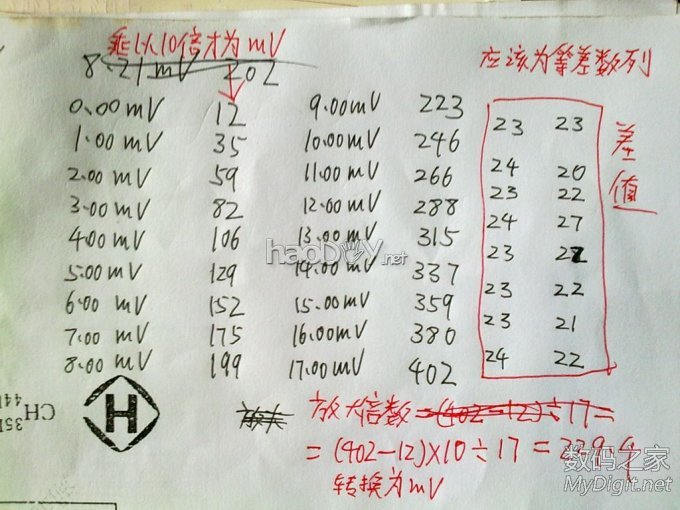 乘以10倍才为mV
8.21mV 202
应该为等差数列
0.00mV 12 9.00mV 223
1.00mV 35 10.00mV 246
2.00mV 59 11.00mV 266
3.00mV 82 12.00mV 288
4.00mV 106 13.00mV 315
5.00mV 129 14.00mV 337
6.00mV 152 15.00mV 359
7.00mV 175 16.00mV 380
8.00mV 199 17.00mV 402
23 23
24 20
23 22
24 27
23 22
23 22
23 21
24 22
差值
haoDIY.net
H
CH
放大
放大倍数=(402-12)÷17=
=(402-12)×10÷17=229.4
转换为mV
数码之家
MyDigit.net